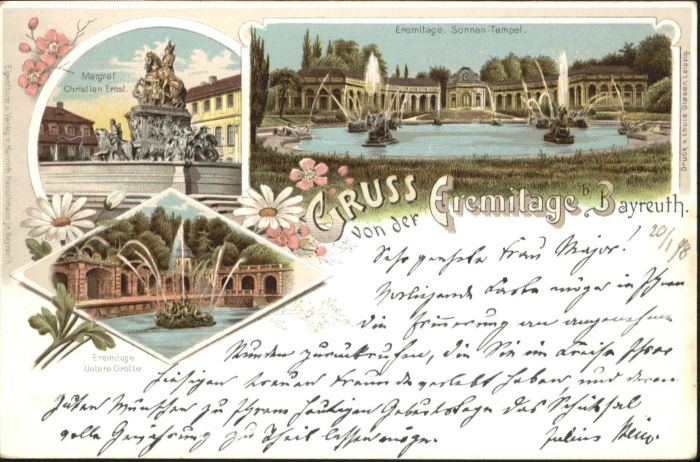 Eremitage, Sonnen-Tempel.
Margraf
Christian Ernst.
Eigenthum u. Verlag v. Heinrich Heuschmann jr. Bayreuth
Druck v. Louis Glaser, Leipzig.
GRUSS
von der Eremitage b/ Bayreuth.
20/1 98
Eremitage
Untere Grotte.
Sehr geehrte Frau Major!
Vorliegende Karte möge in Ihnen
die Erinnerung an angenehme
Stunden zurückrufen, die Sie im Kreise Ihrer
hiesigen treuen Freunde verlebt haben und deren
guten Wünschen zu Ihrem heutigen Geburtstage das Schicksal
volle Gewährung zu Theil lassen möge.
Julius